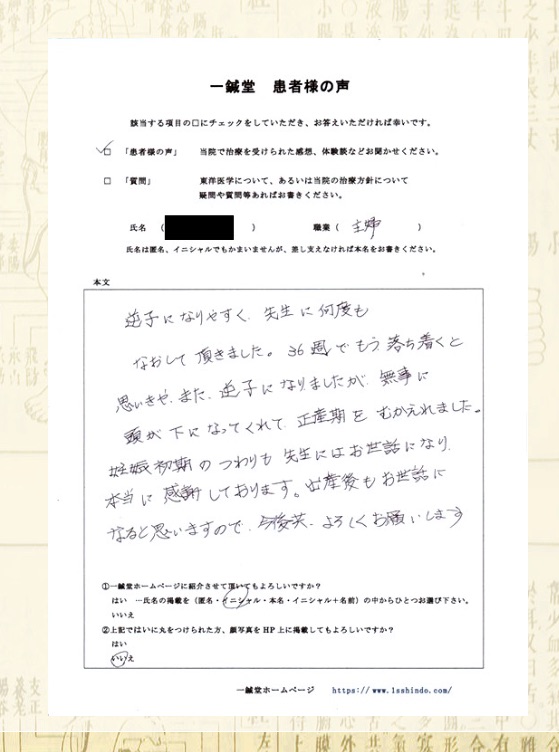 一鍼堂 患者様の声
該当する項目の□にチェックをしていただき、お答えいただければ幸いです。
□ 「患者様の声」 当院で治療を受けられた感想、体験談などお聞かせください。
□ 「質問」 東洋医学について、あるいは当院の治療方針について
疑問や質問等あればお書きください。
氏名 ( ) 職業 ( 主婦 )
氏名は匿名、イニシャルでもかまいませんが、差し支えなければ本名をお書きください。
本文
逆子になりやすく、先生に何度も
なおして頂きました。36週でもう落ち着くと
思いきや、また、逆子になりましたが、無事に
頭が下になってくれて、正産期をむかえれました。
妊娠初期のつわりも先生にはお世話になり、
本当に感謝しております。出産後もお世話に
なると思いますので、今後共、よろしくお願いします
①一鍼堂ホームページに紹介させて頂いてもよろしいですか？
はい －氏名の掲載を（匿名・イニシャル・本名・イニシャル＋名前）の中からひとつお選び下さい。
いいえ
②上記ではいに丸をつけられた方、顔写真を HP 上に掲載してもよろしいですか？
はい
いいえ
一鍼堂ホームページ https://www.1sshindo.com/